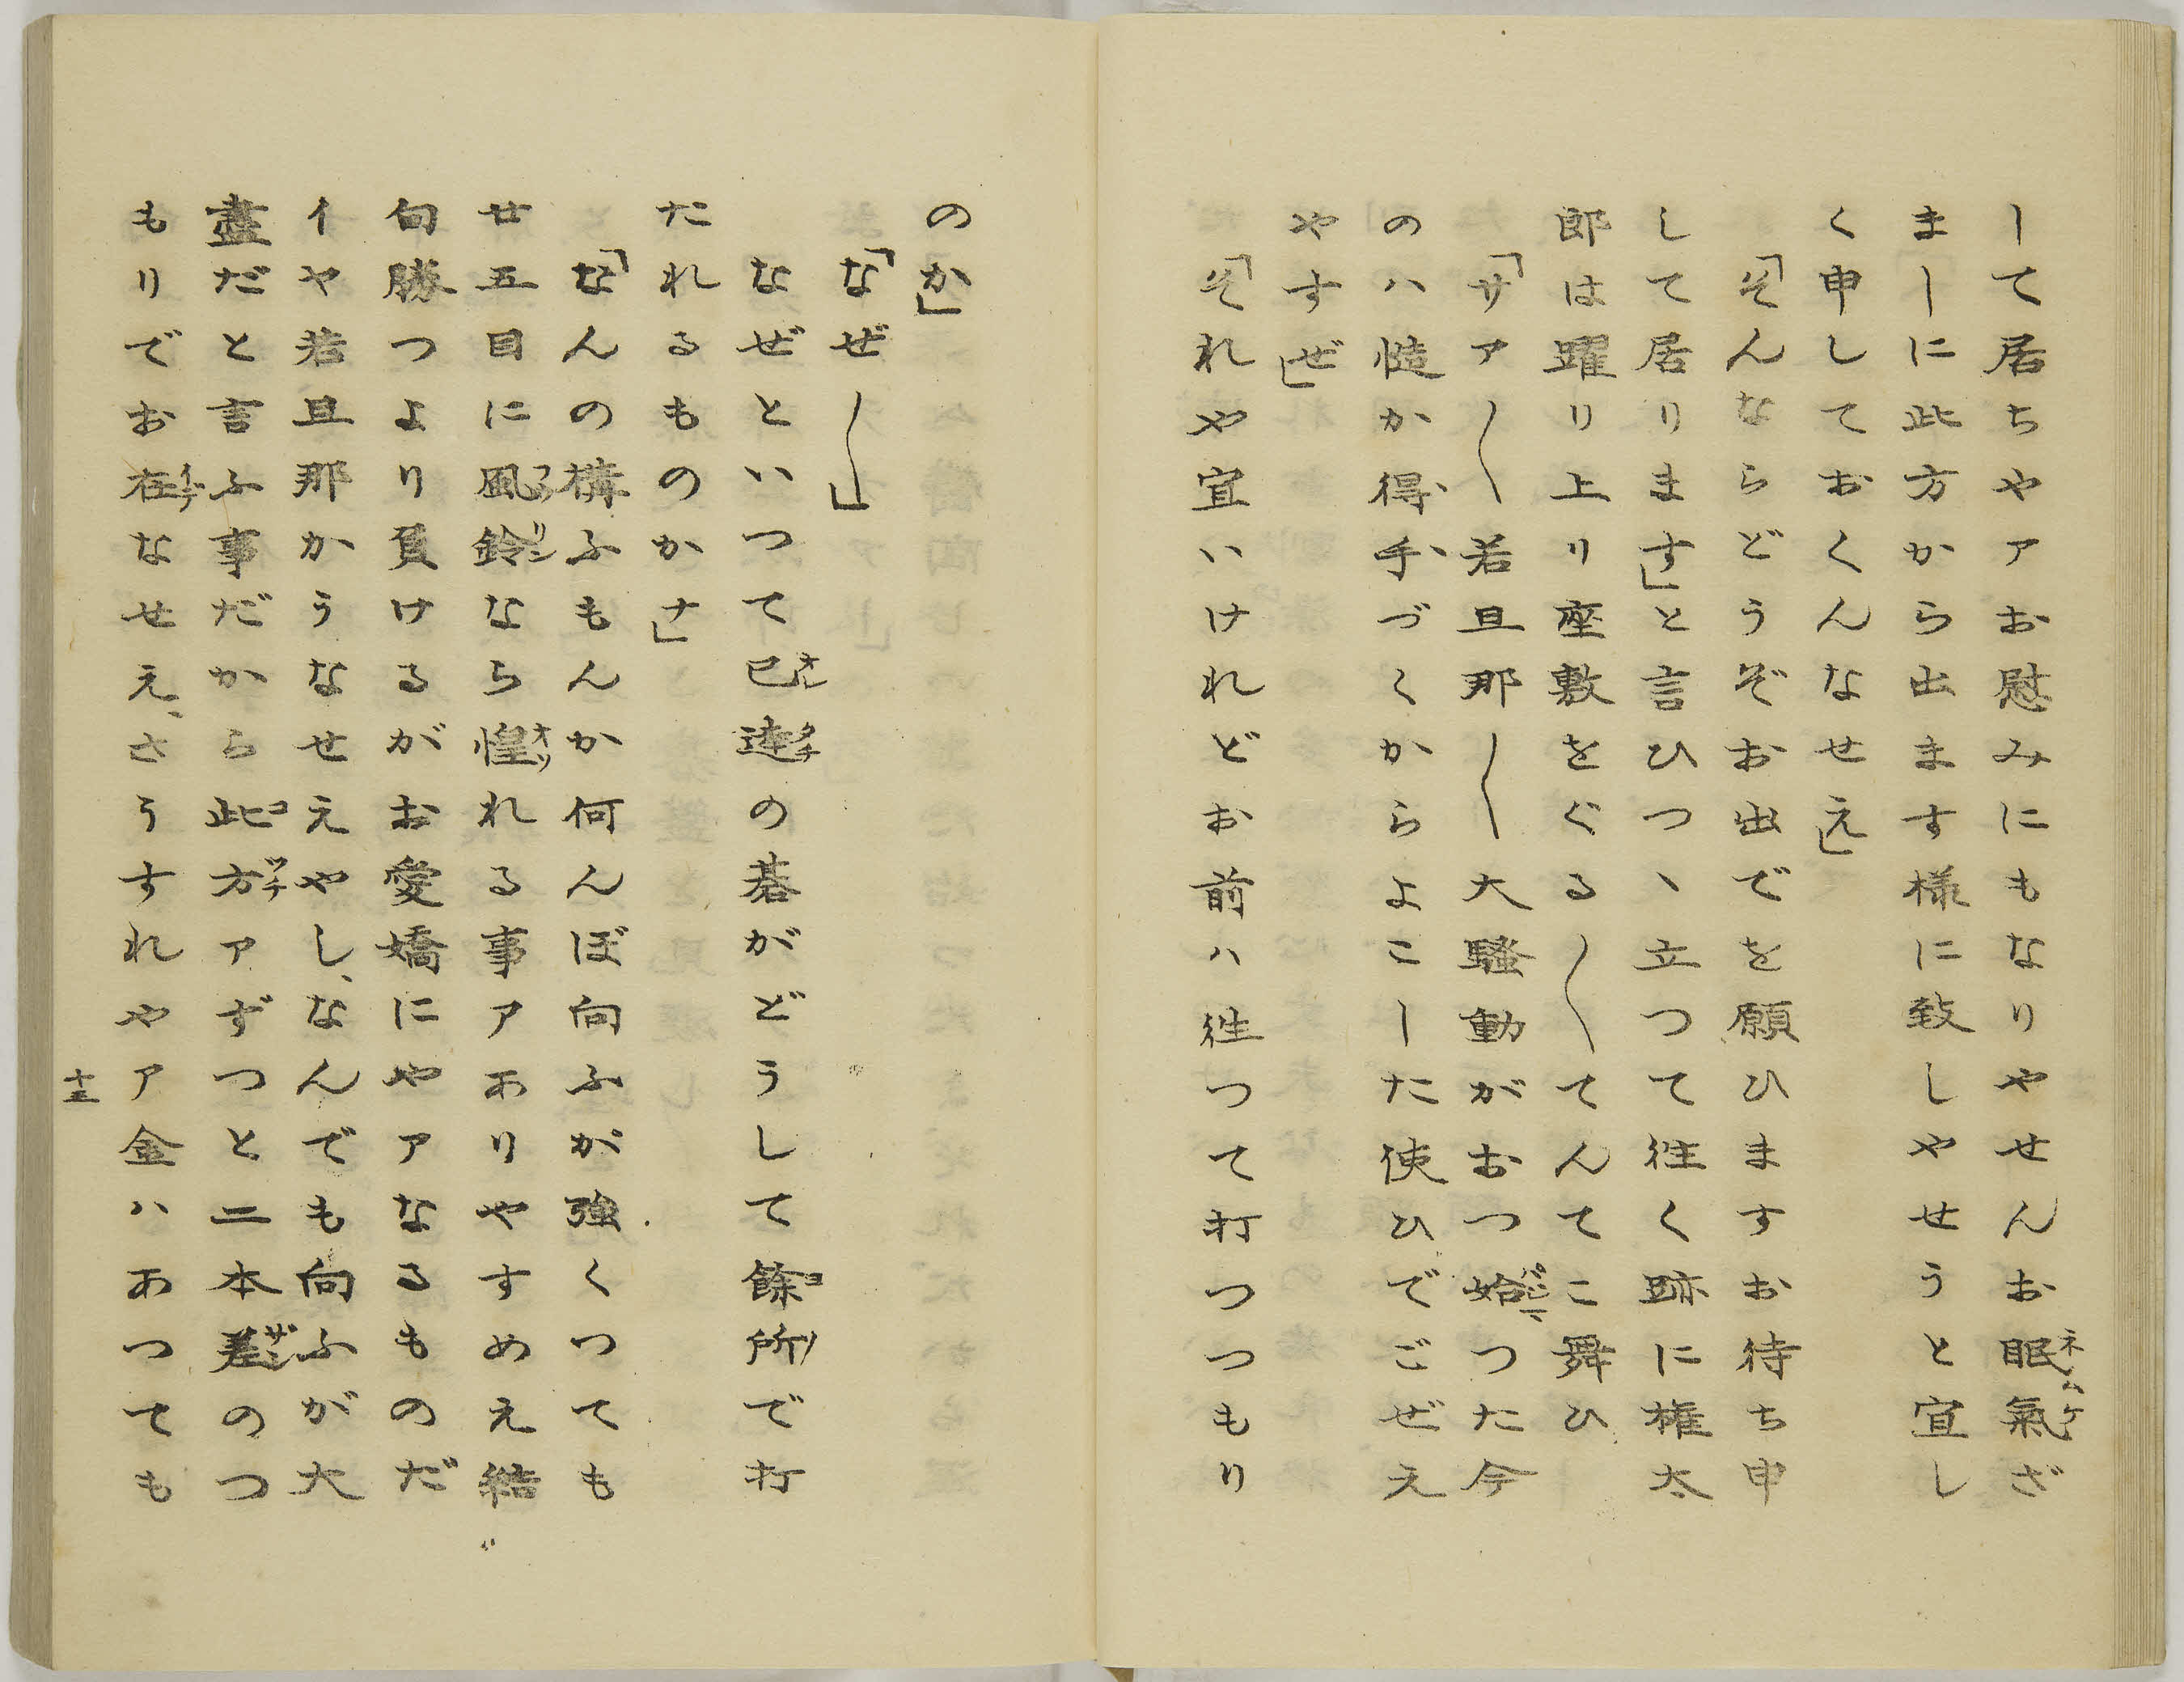 して居ちやアお慰みにもなりやせんお眠氣ざ
ましに此方から出ます様に致しやせうと宜し
く申しておくんなせえ」
「そんならどうぞお出でを願ひますお待ち申
して居ります」と言ひつゝ立つて徃く跡に権太
郎は躍り上り座敷をぐる〱てんてこ舞ひ
「サア〱若旦那〱大騒動がおつ始つた今
のハ慥か得手づくからよこした使ひでごぜえ
やすぜ」
「それや宜いけれどお前ハ徃つて打つつもり
のか」
「なぜ〱」
なぜといつて已達の碁がどうして餘所で打
たれるものかナ」
「なんの構ふもんか何んぼ向ふが強くつても
廿五目に風鈴なら惶れる事アありやすめえ結
句勝つより負けるがお愛嬌にやアなるものだ
イや若旦那かうなせえやし、なんでも向ふが大
盡だと言ふ事だから此方アずつと二本差のつ
もりでお在なせえ、さうすれやア金ハあつても
十五